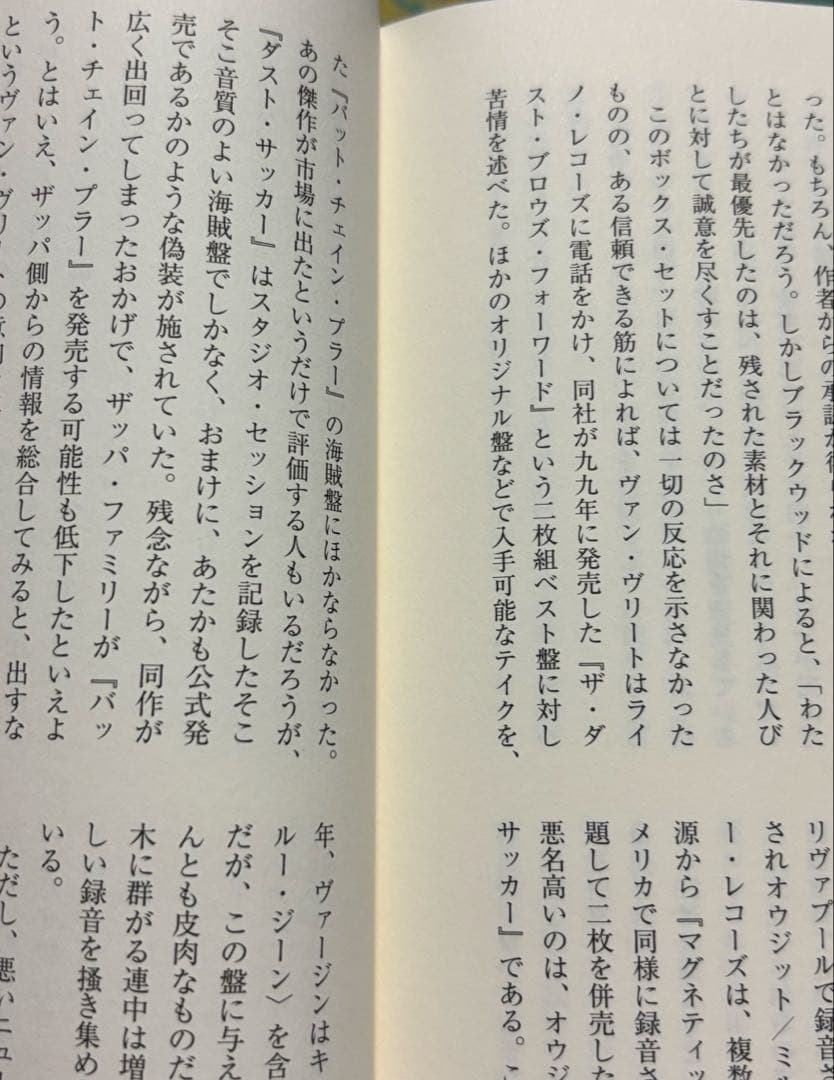 った。もちろん、作者からの承認が得
とはなかっただろう。しかしブラックウッドによると、「わた
したちが最優先したのは、残された素材とそれに関わった人び
とに対して誠意を尽くすことだったのさ」
このボックス・セットについては一切の反応を示さなかった
ものの、ある信頼できる筋によれば、ヴァン・ヴリートはライ
ノ・レコーズに電話をかけ、同社が九九年に発売した『ザ・ダ
スト・ブロウズ・フォーワード』という二枚組ベスト盤に対し
苦情を述べた。ほかのオリジナル盤などで入手可能なテイクを、
リヴァプールで録音
されオウジット/ミ
ー・レコーズは、複数
源から『マグネティッ
メリカで同様に録音さ
題して二枚を併売した
悪名高いのは、オウジ
サッカー』である。こ
た『バット・チェイン・プラー』の海賊盤にほかならなかった。
あの傑作が市場に出たというだけで評価する人もいるだろうが、
『ダスト・サッカー』はスタジオ・セッションを記録したそこ
そこ音質のよい海賊盤でしかなく、おまけに、あたかも公式発
売であるかのような偽装が施されていた。残念ながら、同作が
広く出回ってしまったおかげで、ザッパ・ファミリーが『バッ
ト・チェイン・プラー』を発売する可能性も低下したといえよ
う。とはいえ、ザッパ側からの情報を総合してみると、出すな
というヴァン・ヴリートの意向
年、ヴァージンはキ
ルー・ジーン〉を含
だが、この盤に与え
んとも皮肉なものだ
木に群がる連中は増
しい録音を掻き集め
いる。
ただし、悪いニュー